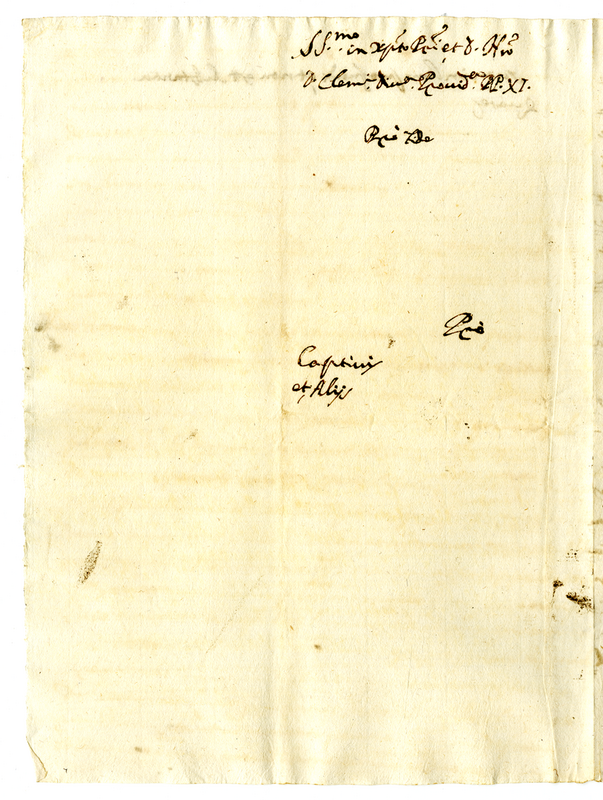 SS.mo in xp̃to Pr̃i, et D. Nr̃o
D. Clem.e Divᵃ Provid.a PP. XI.
Pro
Pro
Captivis
et Alijs